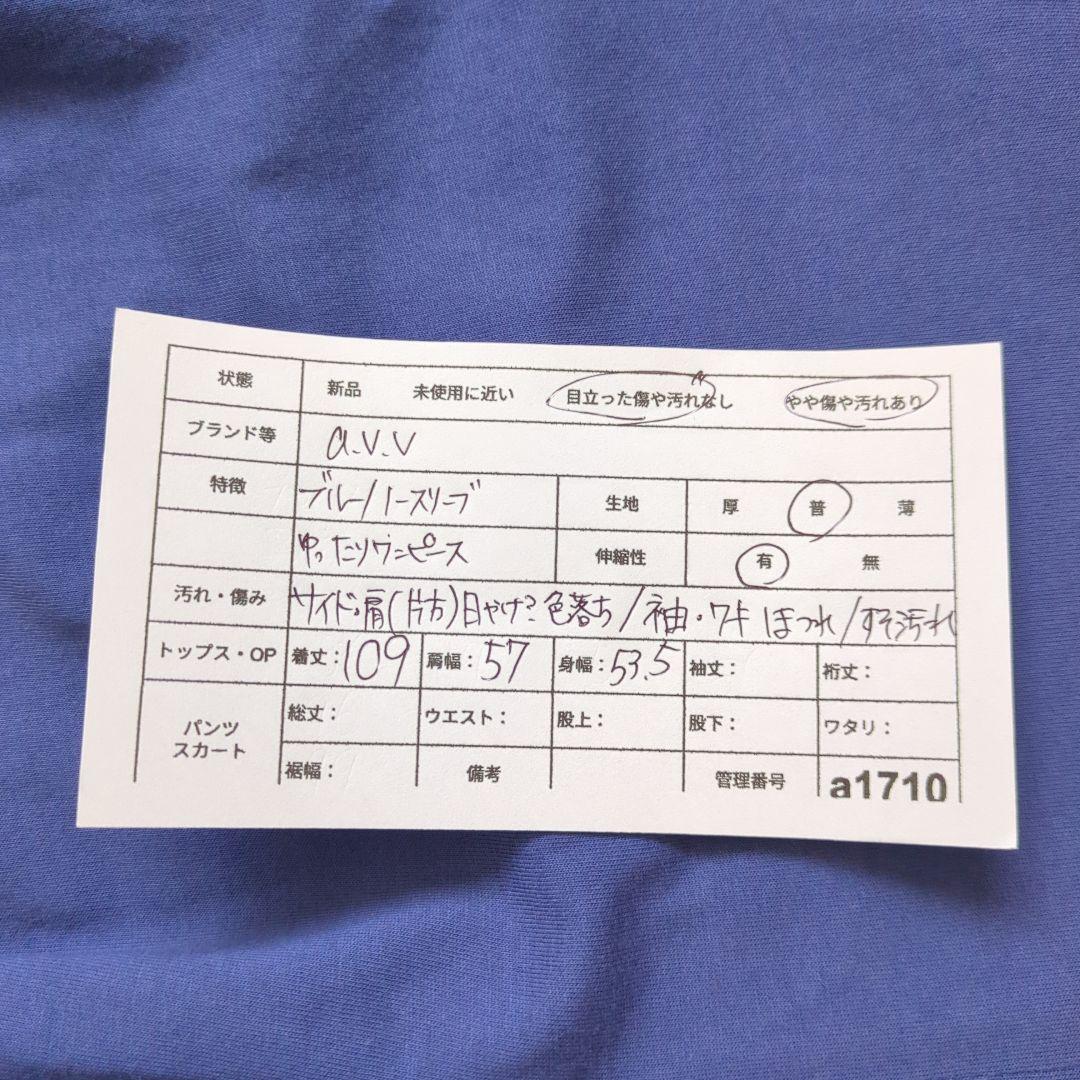 状態 新品 未使用に近い 目立った傷や汚れなし やや傷や汚れあり
ブランド等 a.v.v
特徴 ブルー/ノースリーブ 生地 厚 普 薄
ゆったりワンピース 伸縮性 有 無
汚れ・傷み サイド・肩(片方)日やけ?色落ち/袖・ワキ ほつれ/すそ汚れ
トップス・OP 着丈:109 肩幅:57 身幅:53.5 袖丈: 裄丈:
パンツ スカート 総丈: ウエスト: 股上: 股下: ワタリ:
裾幅: 備考 管理番号 a1710